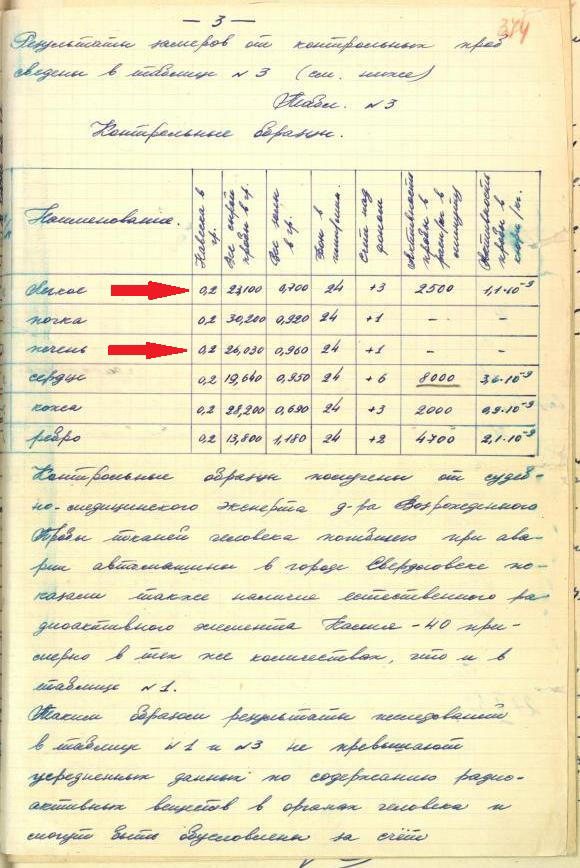 — 3 —
374
Результаты замеров от контрольных проб
сведены в таблице №3 (см. ниже)
Табл. №3
Контрольные образцы.
Наименование. Навеска в гр. Вес сырой пробы в гр. Вес золы в гр. Фон в Счёт над фоном Активность пробы в распр в минуту Активность пробы в кюри/кг.
легкое 0,2 23,100 0,700 24 +3 2500 1,1·10⁻⁹
почка 0,2 30,200 0,920 24 +1 – –
печень 0,2 26,030 0,960 24 +1 – –
сердце 0,2 19,640 0,950 24 +6 8000 3,6·10⁻⁹
кожа 0,2 28,200 0,690 24 +3 2000 0,9·10⁻⁹
ребро 0,2 13,800 1,180 24 +2 4700 2,1·10⁻⁹
Контрольные образцы получены от судеб-
но-медицинского эксперта д-ра Возрожденного
Пробы тканей человека погибшего при ава-
рии автомашины в городе Свердловске по-
казали также наличие естественного ра-
диоактивного элемента Калия-40 при-
мерно в тех же количествах, что и в
таблице №1.
Таким образом результаты исследований
в таблице №1 и №3 не превышают
усредненных данных по содержанию радио-
активных веществ в органах человека и
могут быть обусловлены за счёт